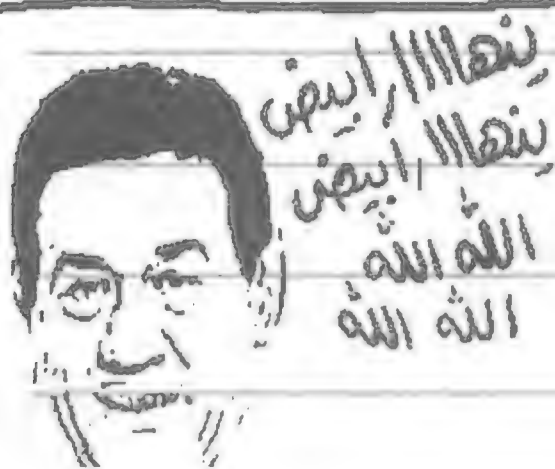 ينهاااار ابيض
ينهااار ابيض
الله الله
الله الله